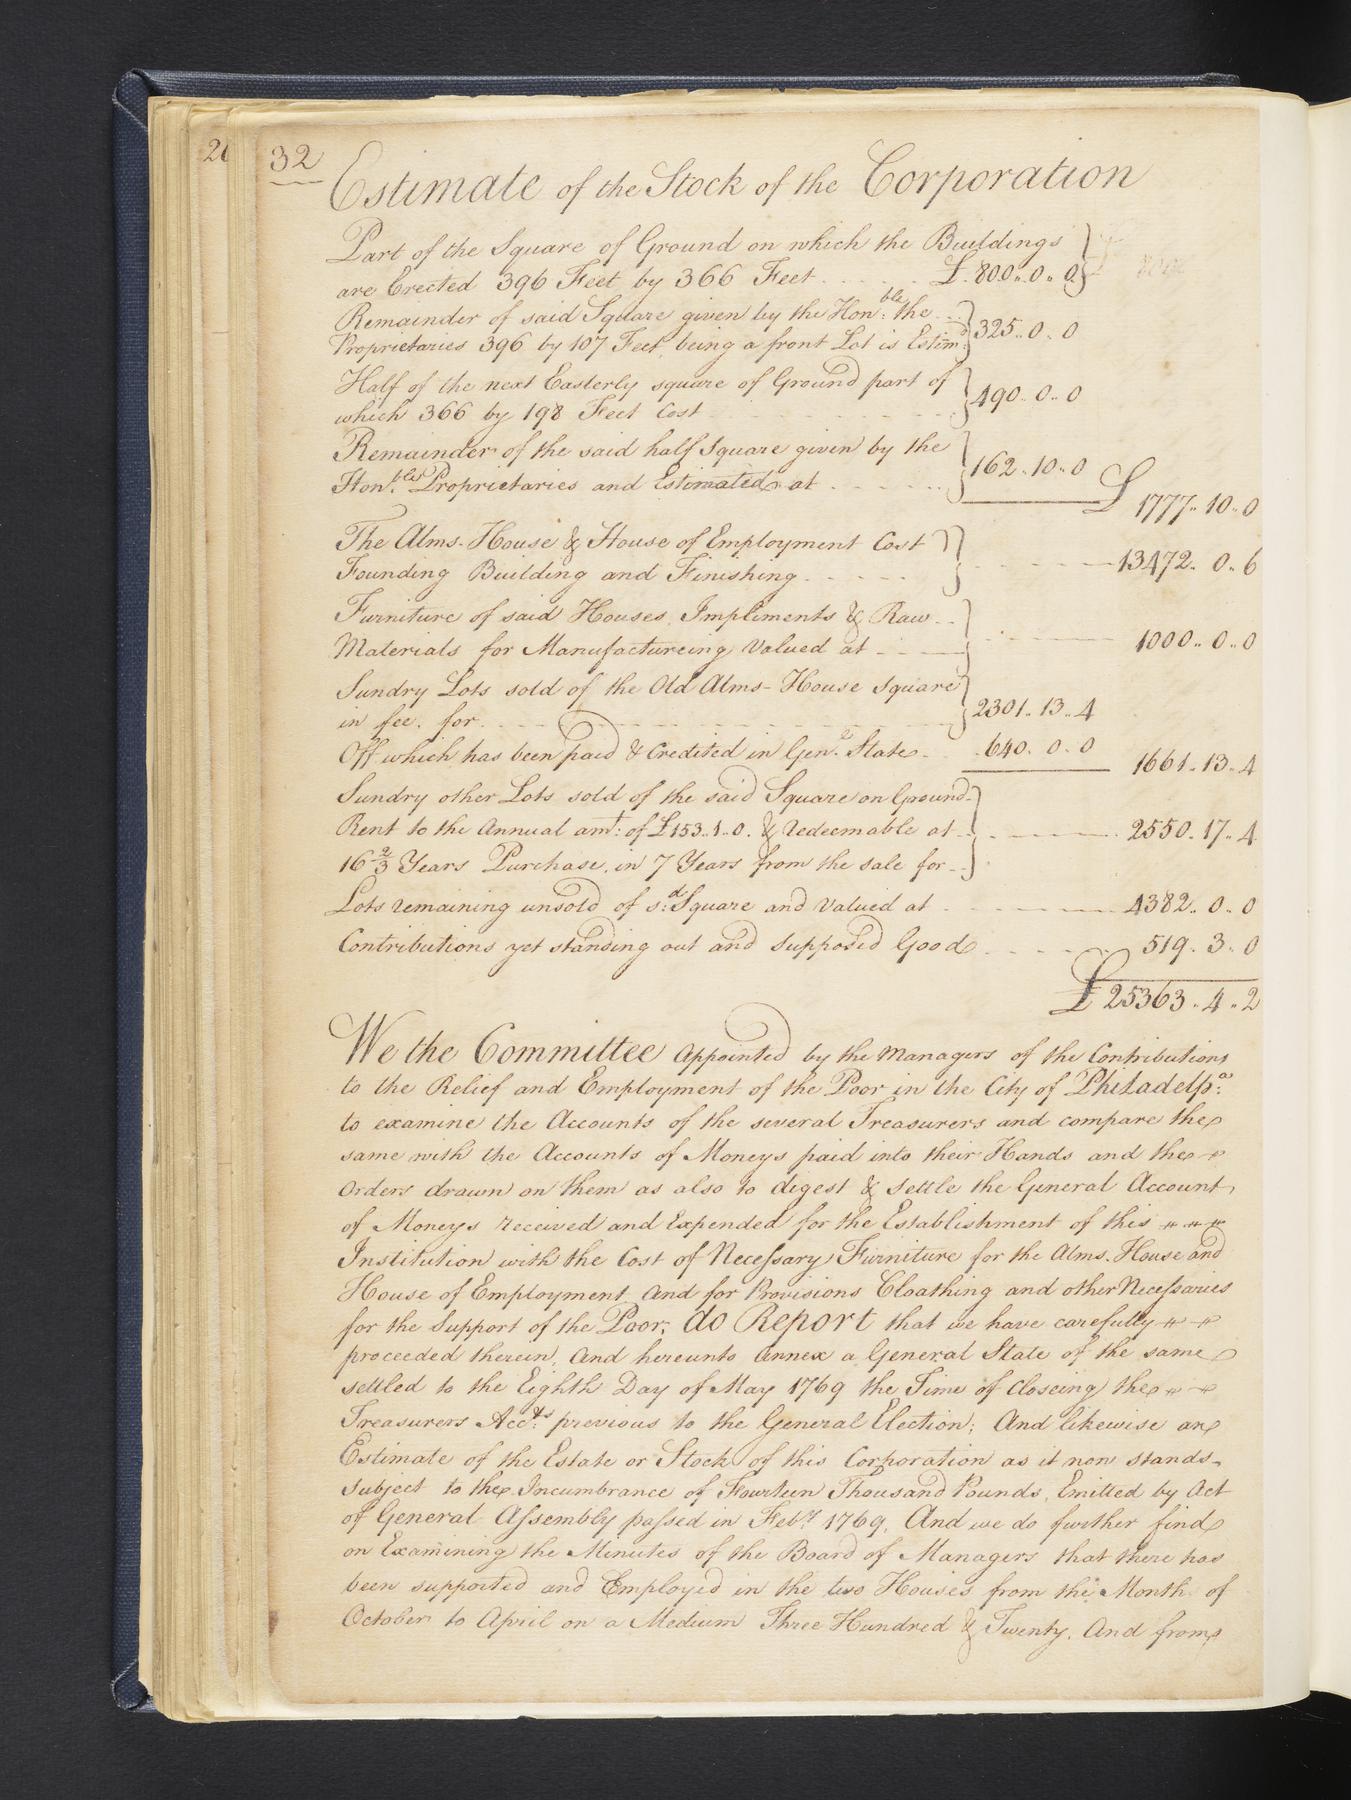 26
32
Estimate of the Stock of the Corporation
Part of the Square of Ground on which the Buildings
are Erected 396 Feet by 366 Feet £.800..0..0
Remainder of said Square given by the Hon.ble the
Proprietaries 396 by 107 Feet, being a front Lot is Estim.d 325..0..0
Half of the next Easterly square of Ground part of
which 366 by 198 Feet Cost 490..0..0
Remainder of the said half Square given by the
Hon.ble Proprietaries and Estimated at 162..10..0
£ 1777..10..0
The Alms-House & House of Employment Cost
Founding Building and Finishing 13472..0..6
Furniture of said Houses, Impliments & Raw
Materials for Manufactureing Valued at 1000..0..0
Sundry Lots sold of the Old Alms-House Square
in fee. for 2301..13..4
Off which has been paid & Credited in Gen.l State 640..0..0 1661..13..4
Sundry other Lots sold of the said Square on Ground
Rent to the Annual amt: of £153..1..0. & Redeemable at 2550..17..4
16 2/3 Years Purchase, in 7 Years from the sale for
Lots remaining unsold of s:d Square and Valued at 4382..0..0
Contributions yet standing out and Supposed Good 519..3..0
£ 25363..4..2
We the Committee appointed by the Managers of the Contributions
to the Relief and Employment of the Poor in the City of Philadelp:a
to examine the Accounts of the several Treasurers and compare the
same with the Accounts of Moneys paid into their Hands and the
Orders drawn on them as also to digest & settle the General Account,
of Moneys received and Expended for the Establishment of this
Institution with the Cost of Necessary Furniture for the Alms-House and
House of Employment, and for Provisions Cloathing and other Necessaries
for the Support of the Poor; do Report that we have carefully
proceeded therein, and hereunto annex a General State of the same
settled to the Eighth Day of May 1769 the Time of Closeing the
Treasurers Acc:ts previous to the General Election; And likewise an
Estimate of the Estate or Stock of this Corporation as it now stands-
Subject to the Incumbrance of Fourteen Thousand Pounds, Emitted by Act
of General Assembly passed in Feb.y 1769, And we do further find
on Examining the Minutes of the Board of Managers that there has
been supported and Employed in the two Houses from the Month of
October to April on a Medium Three Hundred & Twenty, And from